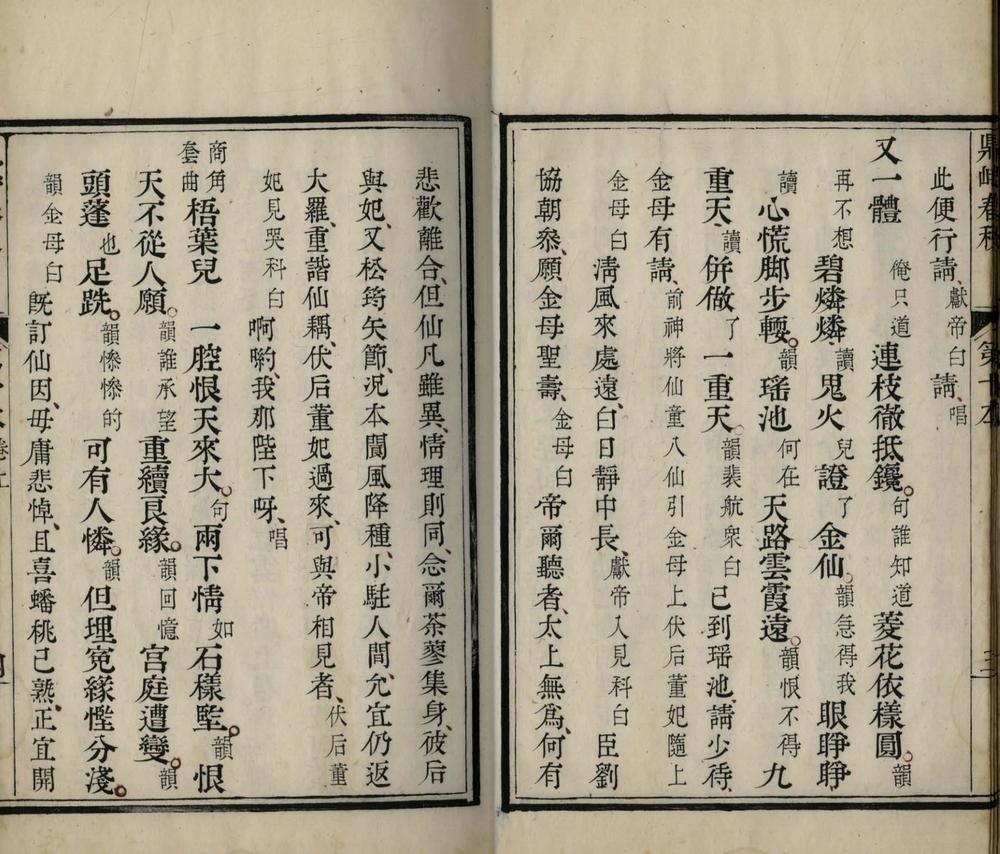 鼎峙春秋
第十本
此便行請、獻帝白請、唱
又一體 俺只道連枝徹抵鑱。句誰知道菱花依樣圓。韻
再不想碧燐燐、讀鬼火兒證了金仙。韻急得我眼睜睜
讀心慌脚步輭。韻瑤池何在天路雲霞遠。韻恨不得九
重天、讀併做了一重天。韻裴航衆白已到瑤池、請少待、
金母有請、前神將仙童八仙引金母上伏后董妃隨上
金母白清風來處遠、白日靜中長、獻帝入見科白臣劉
協朝叅、願金母聖壽、金母白帝爾聽者、太上無爲、何有
悲歡離合、但仙凡雖異、情理則同、念爾茶蓼集身、彼后
與妃、又松筠矢節、況本閬風降種、小駐人間、允宜仍返
大羅、重諧仙耦、伏后董妃過來、可與帝相見者、伏后董
妃見哭科白啊喲、我那陛下呀、唱
商角套曲 梧葉兒 一腔恨天來大。句兩下情如石樣堅。韻恨
天不從人願。韻誰承望重續良緣。韻回憶宮庭遭變。韻
頭蓬也足跣。韻慘慘的可有人憐。韻但埋寃緣慳分淺。
韻金母白旣訂仙因、毋庸悲悼、且喜蟠桃已熟、正宜開